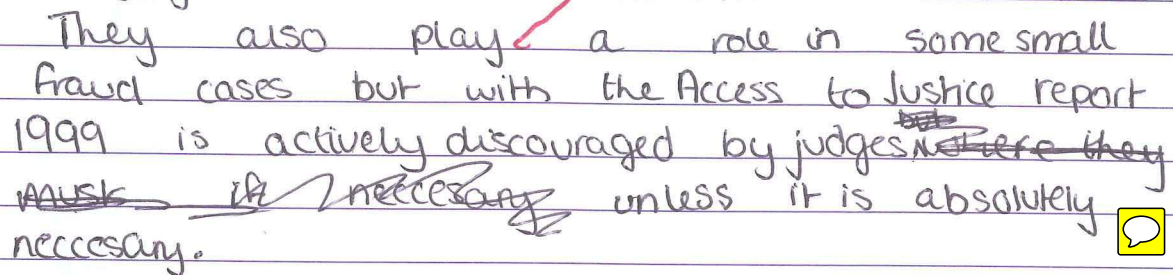 They also play a role in some small
fraud cases but with the Access to Justice report
1999 is actively discouraged by judges where they
must if neccesary unless it is absolutely
neccesary.